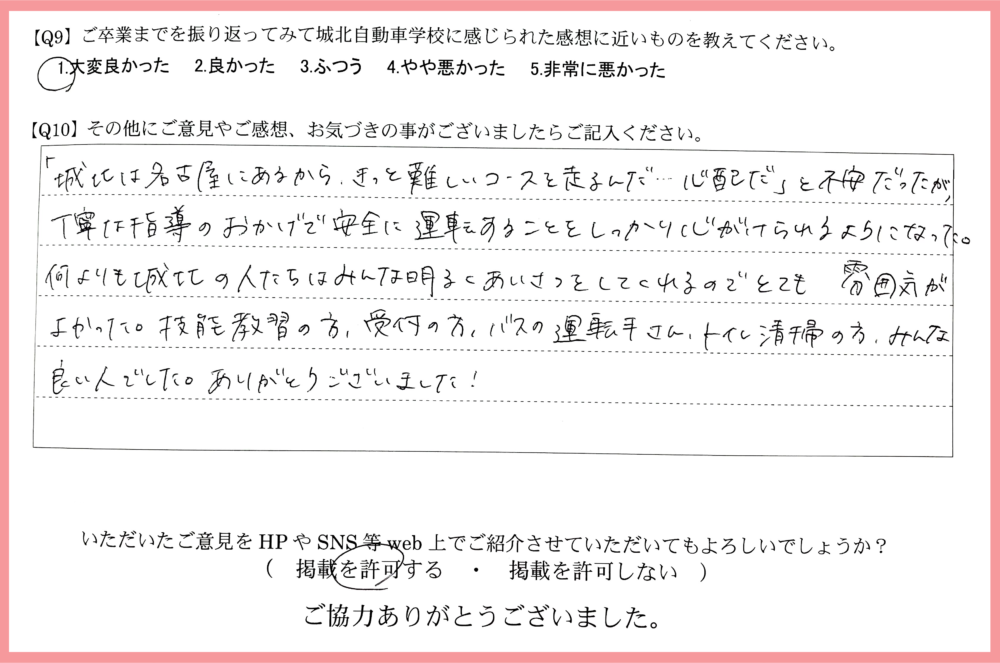 【Q9】ご卒業までを振り返ってみて城北自動車学校に感じられた感想に近いものを教えてください。
1.大変良かった 2.良かった 3.ふつう 4.やや悪かった 5.非常に悪かった
【Q10】その他にご意見やご感想、お気づきの事がございましたらご記入ください。
「城北は名古屋にあるから、きっと難しいコースを走るんだ…心配だ」と不安だったが、
丁寧な指導のおかげで安全に運転することをしっかり心がけられるようになった。
何よりも城北の人たちはみんな明るくあいさつをしてくれるのでとても 雰囲気が
よかった。技能教習の方、受付の方、バスの運転手さん、トイレ清掃の方、みんな
良い人でした。ありがとうございました!
いただいたご意見をHPやSNS等web上でご紹介させていただいてもよろしいでしょうか?
( 掲載を許可する ・ 掲載を許可しない )
ご協力ありがとうございました。